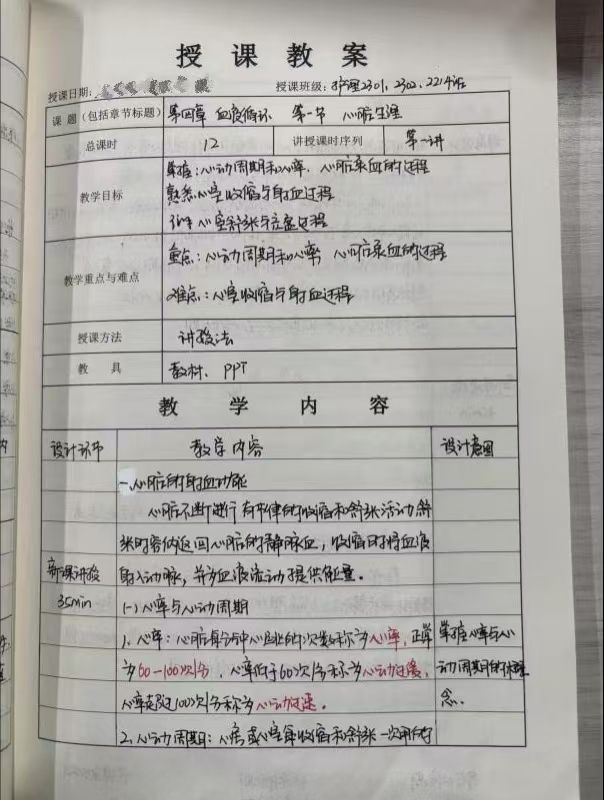 授 课 教 案
授课日期: 授课班级: 护理2301、2302、2214班
课 题 (包括章节标题) 第四章 血液循环 第一节 心脏生理
总课时 12 讲授课时序列 第一讲
掌握:心动周期和心率、心脏泵血的过程
教学目标 熟悉:心室收缩与射血过程
了解 心室舒张与充盈过程
重点:心动周期和心率, 心脏泵血的过程
教学重点与难点
难点:心室收缩与射血过程
授课方法 讲授法
教 具 教材、PPT
教 学 内 容
设计环节 教学内容 设计意图
一、心脏的射血功能
心脏不断进行有节律的收缩和舒张活动 舒
张时容纳返回心脏的静脉血, 收缩时将血液
新课讲授 射入动脉, 并为血液流动提供能量。
35min (一) 心率与心动周期
1、心率: 心脏每分钟心跳的次数称为心率, 正常 掌握心率与心
为60-100次/分, 心率低于60次/分称为心动过缓, 动周期的概
心率超过100次/分称为心动过速。 念。
2、心动周期: 心房或心室每收缩和舒张一次所